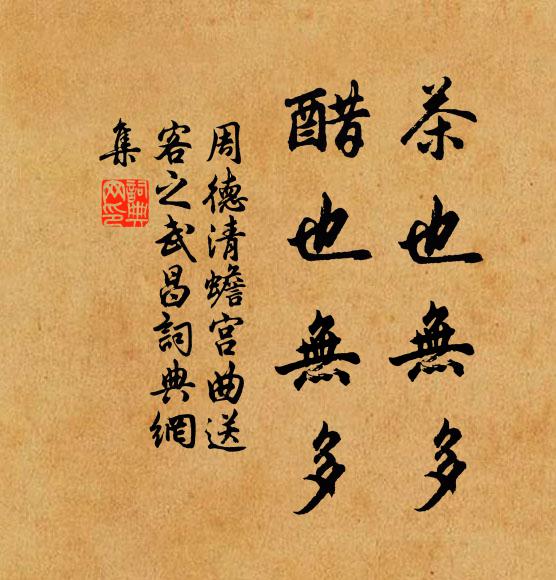 茶也無多
醋也無多
周德清蟾宮曲送
客之武昌詞典網
集
詞典
网印